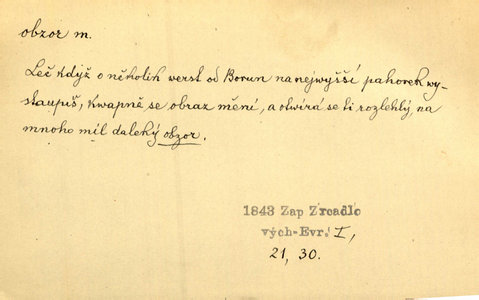 obzor m.
Leč když o několik werst od Borun na nejwyšší pahorek wy-
staupíš, kwapně se obraz mění, a otwírá se ti rozlehlý, na
mnoho mil daleký obzor.
1843 Zap Zrcadlo
vých-Evr. I,
21, 30.